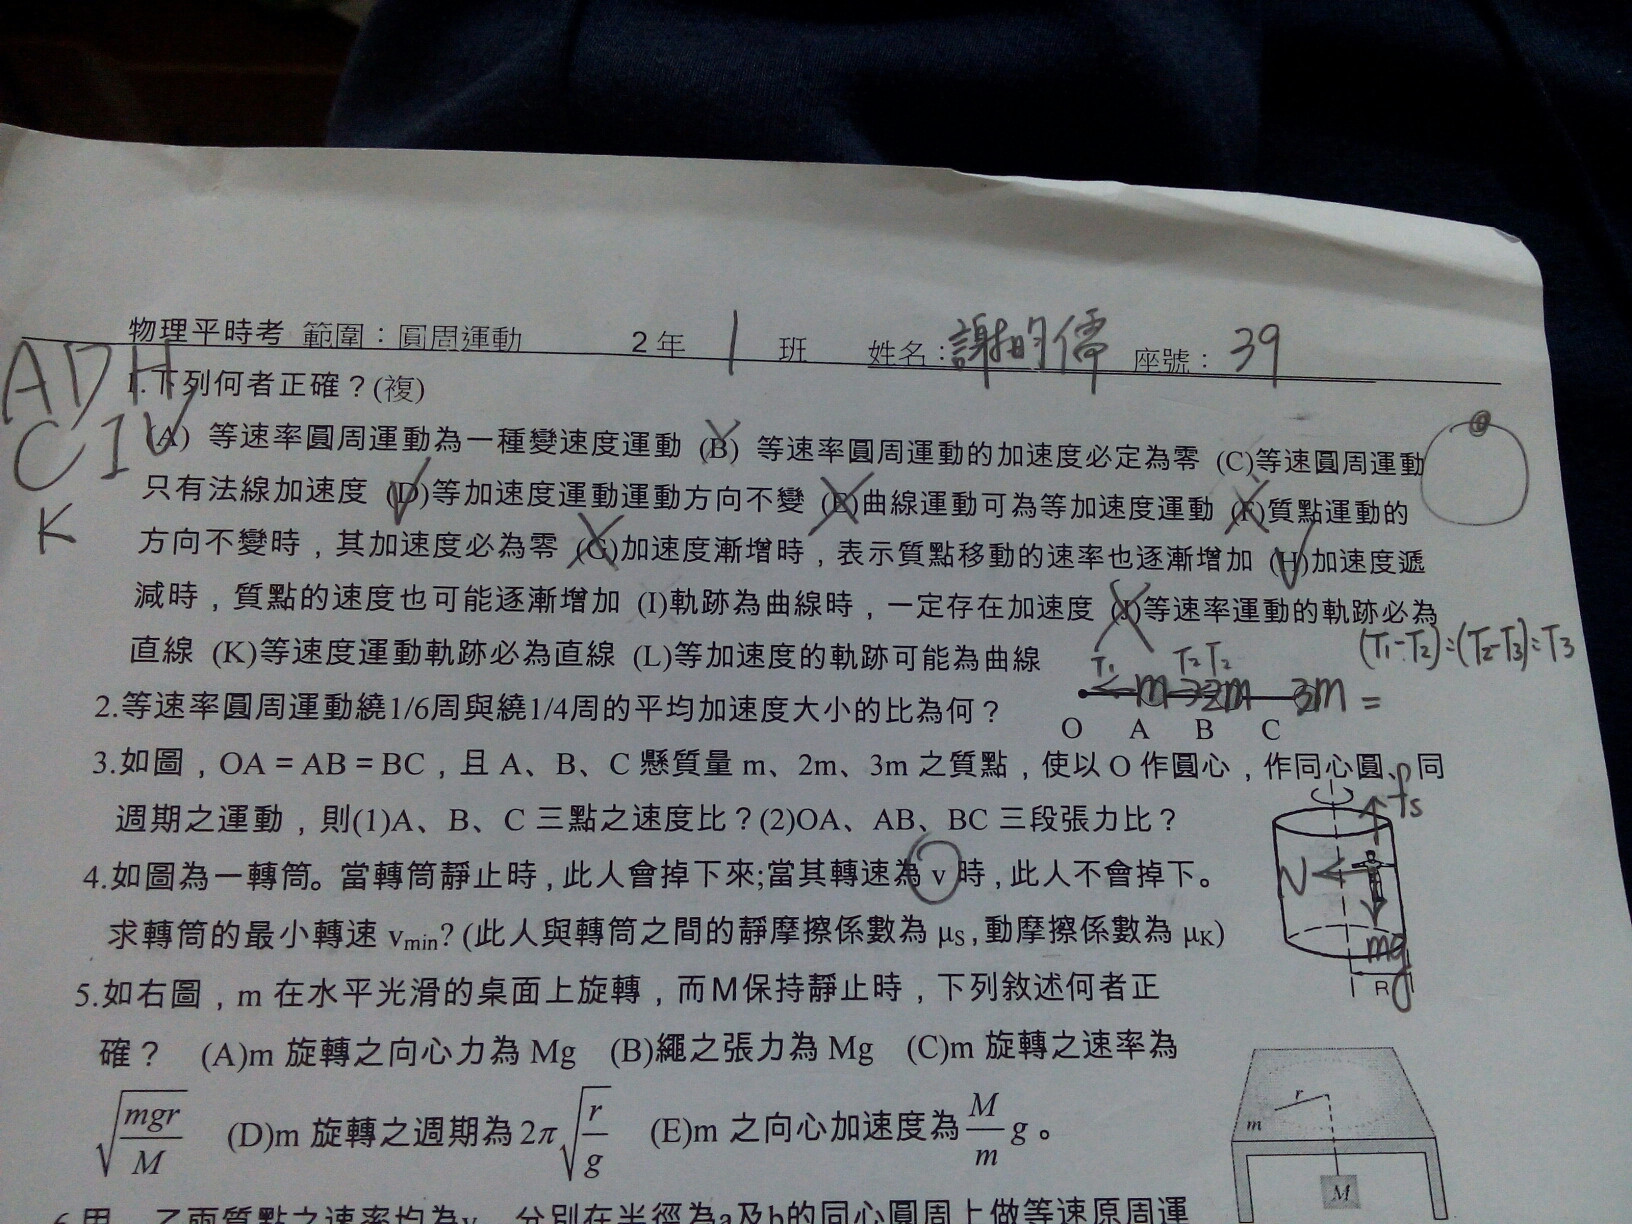 物理平時考 範圍：圓周運動 2年 1 班 姓名： 座號： 39
ADH
CI
K
1.下列何者正確？(複)
(A) 等速率圓周運動為一種變速度運動 (B) 等速率圓周運動的加速度必定為零 (C)等速圓周運動
只有法線加速度 (D)等加速度運動運動方向不變 (E)曲線運動可為等加速度運動 (F)質點運動的
方向不變時，其加速度必為零 (G)加速度漸增時，表示質點移動的速率也逐漸增加 (H)加速度遞
減時，質點的速度也可能逐漸增加 (I)軌跡為曲線時，一定存在加速度 (J)等速率運動的軌跡必為
直線 (K)等速度運動軌跡必為直線 (L)等加速度的軌跡可能為曲線
(T₁-T₂):(T₂-T₃):T₃
=
T₁ T₂ T₂
m 2m 3m
O A B C
2.等速率圓周運動繞1/6周與繞1/4周的平均加速度大小的比為何？
3.如圖，OA = AB = BC，且 A、B、C 懸質量 m、2m、3m 之質點，使以 O 作圓心，作同心圓、同
週期之運動，則(1)A、B、C 三點之速度比？(2)OA、AB、BC 三段張力比？
4.如圖為一轉筒。當轉筒靜止時，此人會掉下來;當其轉速為 v 時，此人不會掉下。
求轉筒的最小轉速 vmin? (此人與轉筒之間的靜摩擦係數為 μS, 動摩擦係數為 μK)
fs
N
mg
R
5.如右圖，m 在水平光滑的桌面上旋轉，而M保持靜止時，下列敘述何者正
確？ (A)m 旋轉之向心力為 Mg (B)繩之張力為 Mg (C)m 旋轉之速率為
√(mgr/M) (D)m 旋轉之週期為 2π√(r/g) (E)m 之向心加速度為 M/m g。
r
m
M
6.甲、乙兩質點之速率均為v，分別在半徑為a及b的同心圓周上做等速原周運